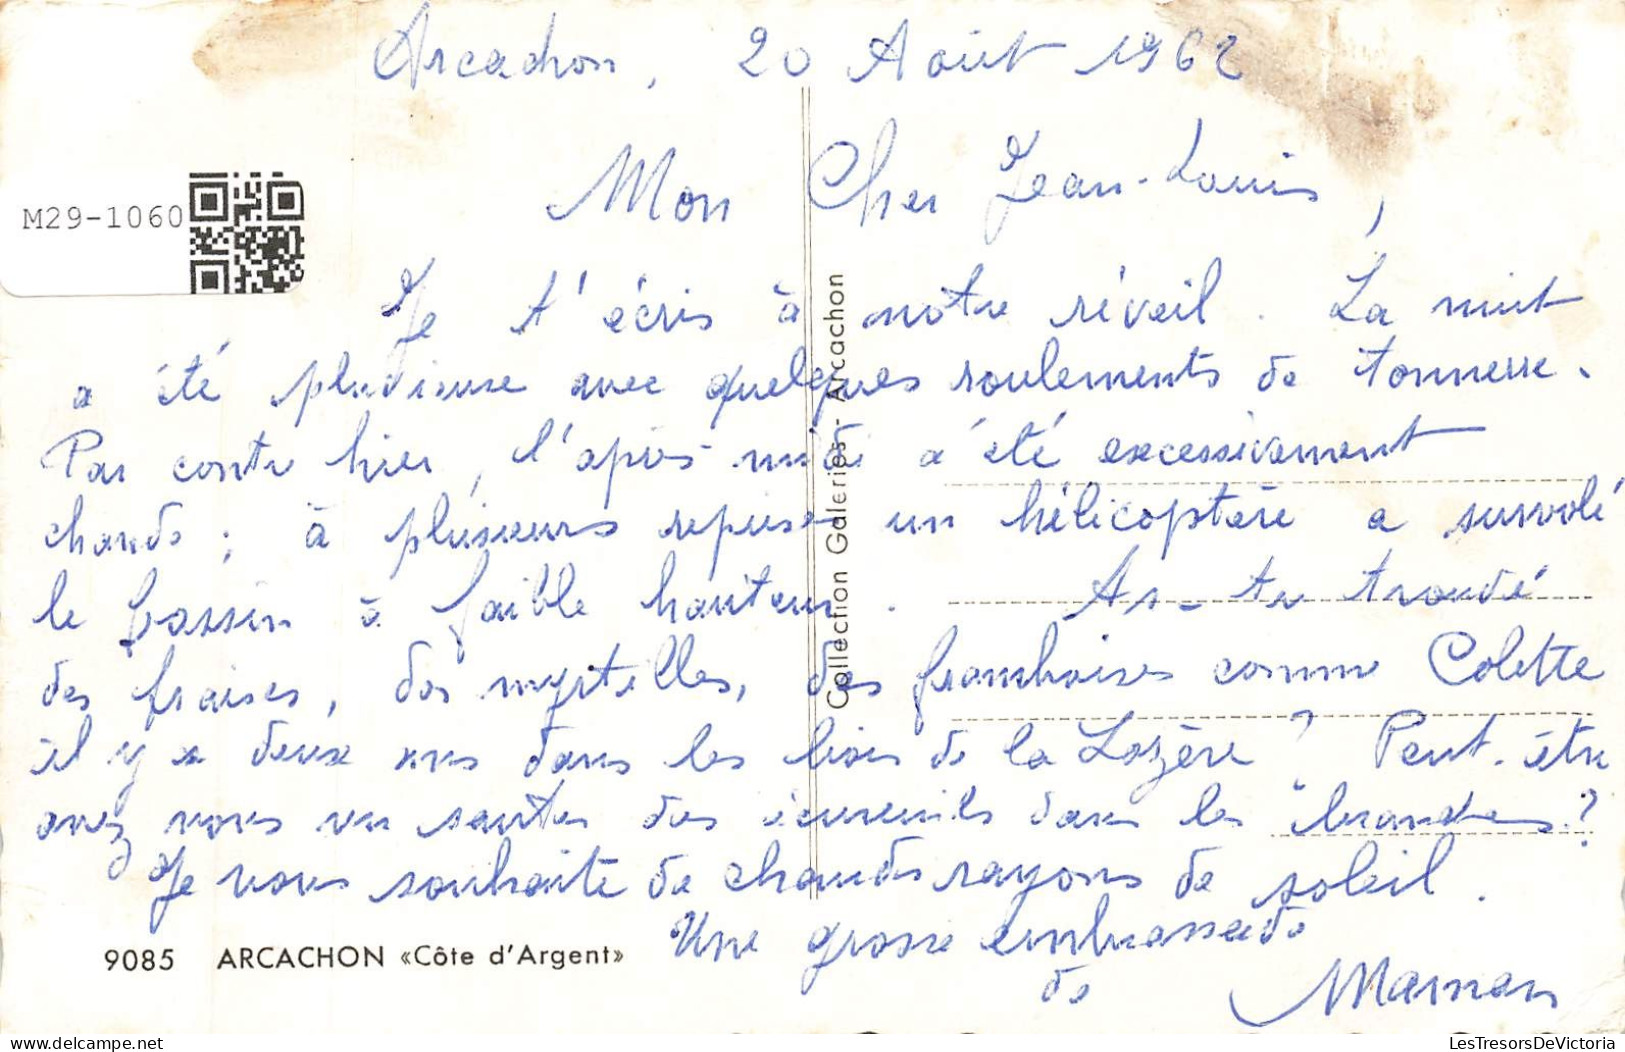 Arcachon, 20 Août 1962
Mon Cher Jean-Louis,
M29-1060
Je t'écris à notre réveil. La nuit
a été pluvieuse avec quelques roulements de tonnerre.
Par contre hier, l'après-midi a été excessivement
chaude ; à plusieurs reprises un hélicoptère a survolé
le bassin à faible hauteur. As-tu trouvé
des fraises, des myrtilles, des framboises comme Colette
il y a deux ans dans les bois de la Lozère ? Peut-être
avez vous vu sauter des écureuils dans les "brandes" ?
Je vous souhaite de chauds rayons de soleil.
Une grosse embrassade
de Maman
Collection Galeries - Arcachon
9085 ARCACHON «Côte d'Argent»
LesTresorsDeVictoria